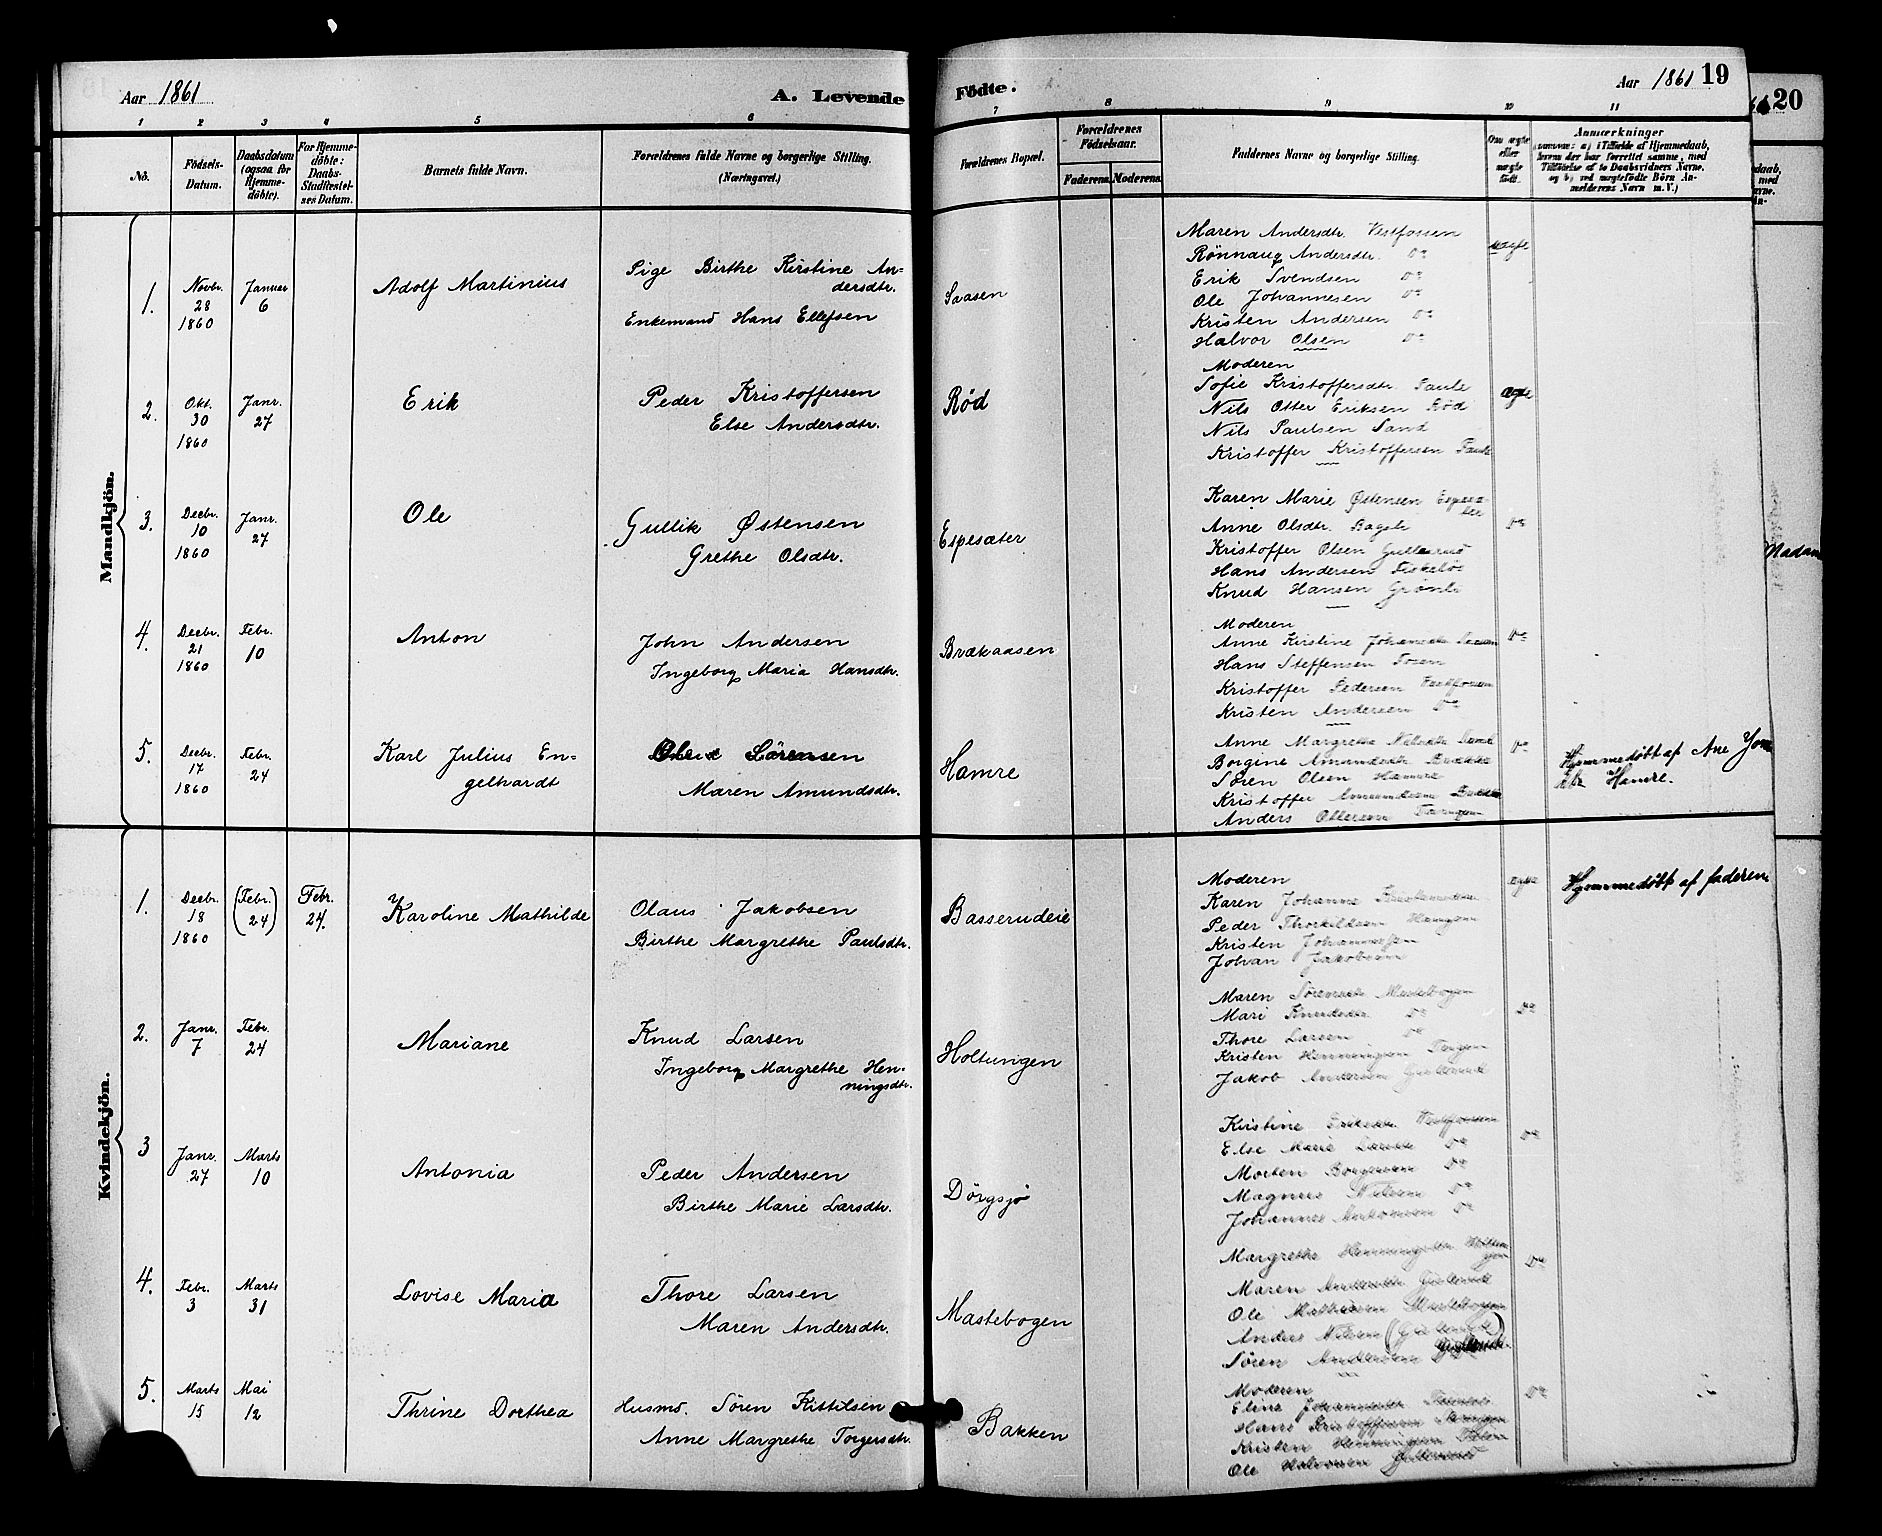 Aar 1861
A. Levende Födte.
Aar 1861 19
20
1 2 3 4 5 6 7 8 9 10 11
No.
Födsels-Datum.
Daabsdatum (ogsaa for Hjemmedöbte).
For Hjemmedöbte: Daabs-Stadfæstelses Datum.
Barnets fulde Navn.
Forældrenes fulde Navne og borgerlige Stilling.
(Næringsvei.)
Forældrenes Bopæl.
Forældrenes Födselsaar.
Faderens. Moderens.
Faddernes Navne og borgerlige Stilling.
Om ægte eller uægte födt.
Anmærkninger
Mandkjön.
1. Novbr. 28 1860 Januar 6 Adolf Martinius
Pige Birthe Kirstine Andersdtr.
Enkemand Hans Ellefsen
Saasen
Maren Andersdtr. Vestfossen
Rönnaug Andersdtr. Do
Erik Svendsen Do
Ole Johannesen Do
Kristen Andersen Do
Halvor Olsen Do
uægte
2. Okt. 30 1860 Janr. 27 Erik
Peder Kristoffersen
Else Andersdtr.
Rød
Moderen
Sofie Kristoffersdtr.
Nils Otter Eriksen Rød
Nils Paulsen Sand
Kristoffer Kristoffersen
ægte
3. Decbr. 10 1860 Janr. 27 Ole
Gullik Østensen
Grethe Olsdtr.
Espesæter
Karen Marie Østensen
Anne Olsdtr.
Kristoffer Olsen Gullerud
Hans Andersen
Knud Hansen Grönli
Do
4. Decbr. 21 1860 Febr. 10 Anton
John Andersen
Ingeborg Maria Hansdtr.
Brækaasen
Moderen
Anne Kirstine
Hans Steffensen
Kristoffer Pedersen
Kristen Andersen Do
Do
5. Decbr. 17 1860 Febr. 24 Karl Julius Engelhardt
Sörensen
Maren Amundsdtr.
Hamre
Anne Margrethe
Borgine Amundsdtr.
Sören Olsen Hamre
Kristoffer Amundsen
Anders Ottersen
Do
Hjemmedöbt af Ane
Hamre.
Madam
Kvindekjön.
1. Decbr. 18 1860 (Febr. 24) Febr. 24. Karoline Mathilde
Olaus Jakobsen
Birthe Margrethe Paulsdtr.
Basserudeie
Moderen
Karen Johanne
Peder Thorkildsen
Kristen Johannessen
Johan Jakobsen
ægte
Hjemmedöbt af faderen
2. Janr. 7 Febr. 24 Mariane
Knud Larsen
Ingeborg Margrethe Henningsdtr.
Holtungen
Maren Mastebogen
Mari Knudsdtr. Do
Thore Larsen Do
Kristen Henningsen
Jakob Andersen Gullerud
Do
3 Janr. 27 Marts 10 Antonia
Peder Andersen
Birthe Marie Larsdtr.
Dörgsjø
Kirstine Vestfossen
Else Marie Do
Morten Borgersen Do
Magnus Nilsen Do
Johannes Do
Do
4. Febr. 3 Marts 31 Lovise Maria
Thore Larsen
Maren Andersdtr.
Mastebogen
Margrethe Henningsdtr.
Maren Andersdtr. Gullerud
Ole Mathisen Mastebogen
Anders Nilsen (Gullerud)
Sören Andersen Gullerud.
Do
5. Marts 15 Mai 12 Thrine Dorthea
Husmd. Sören Kittilsen
Anne Margrethe Torgersdtr.
Bakken
Moderen
Eline Johannesdtr.
Hans Kristoffersen
Kristen Henningsen
Ole Halvorsen Gullerud
Do